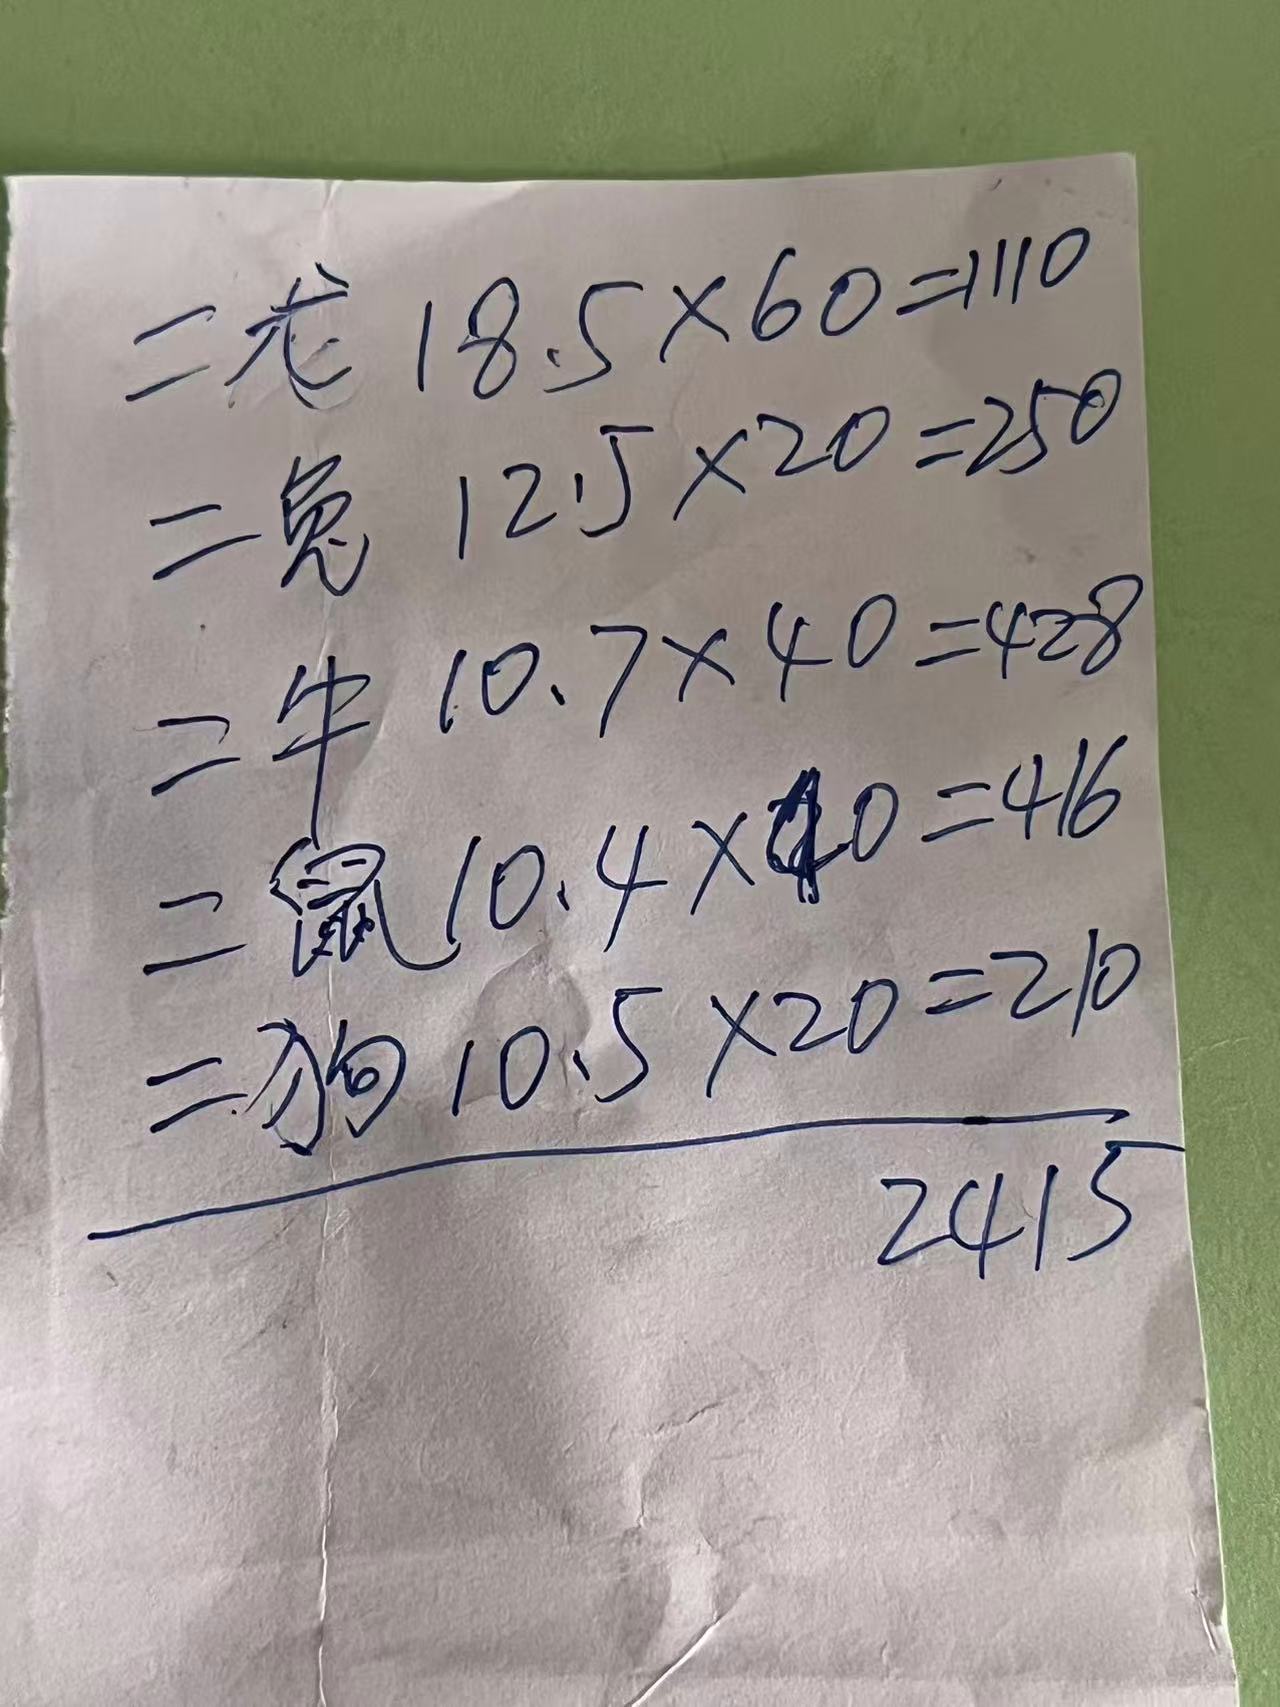 二龙 18.5×60=1110
二兔 12.5×20=250
二牛 10.7×40=428
二鼠 10.4×40=416
二狗 10.5×20=210
2415